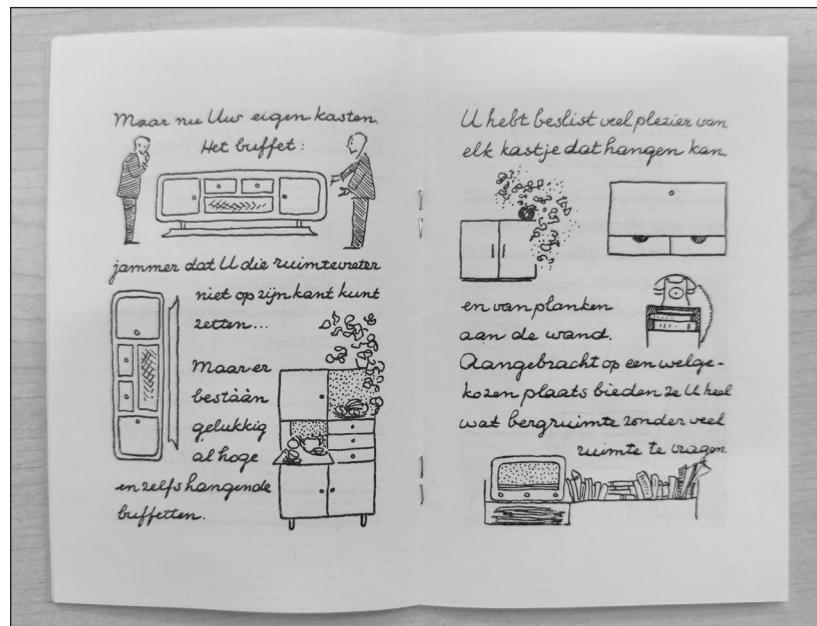 Maar nu Uw eigen kasten.
Het buffet:
jammer dat U die ruimtevreter
niet op zijn kant kunt
zetten...
Maar er
bestààn
gelukkig
al hoge
en zelfs hangende
buffetten.
U hebt beslist veel plezier van
elk kastje dat hangen kan
en van planken
aan de wand.
Aangebracht op een welge-
kozen plaats bieden ze U heel
wat bergruimte zonder veel
ruimte te vragen.